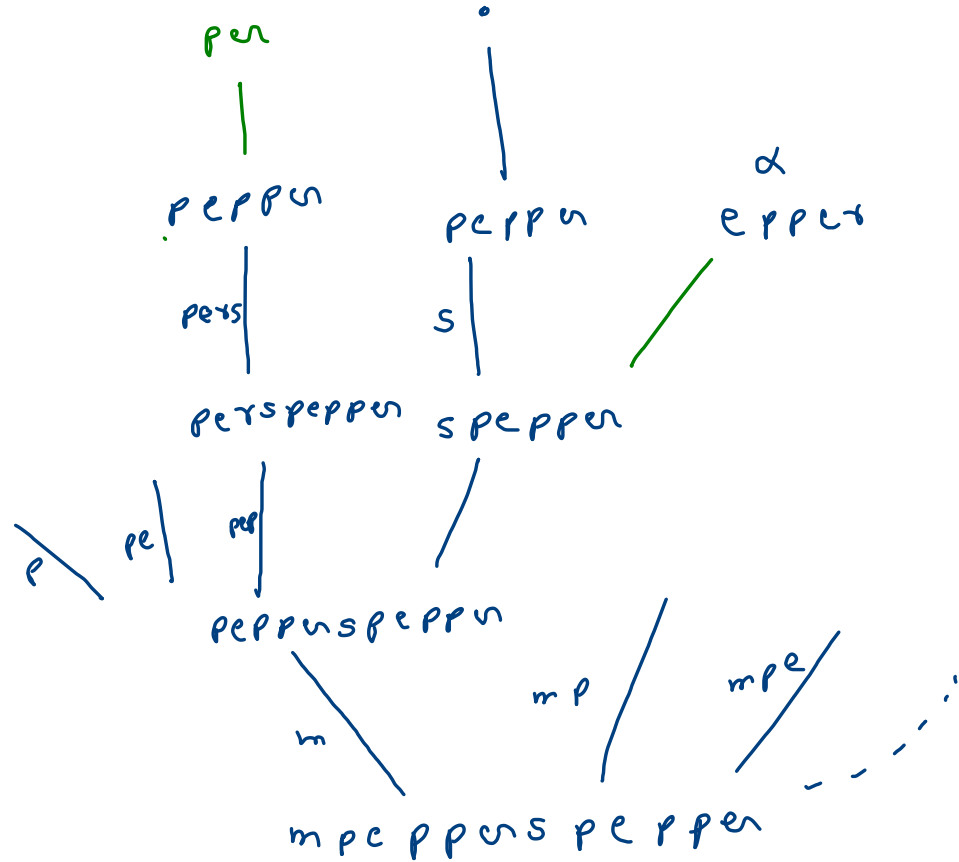 per
α
pepper
pepper
epper
pers
s
perspepper
spepper
p
pe
pep
pepperspepper
mp
mpe
m
mpepperspepper